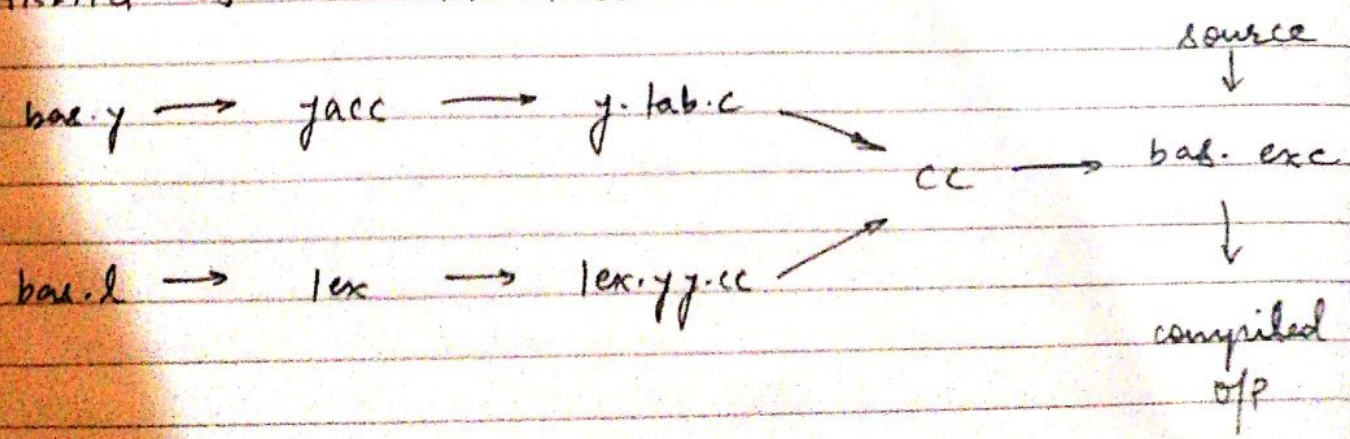 source
bas.y → yacc → y.tab.c
cc → bas.exe
bas.l → lex → lex.yy.cc
compiled
o/p